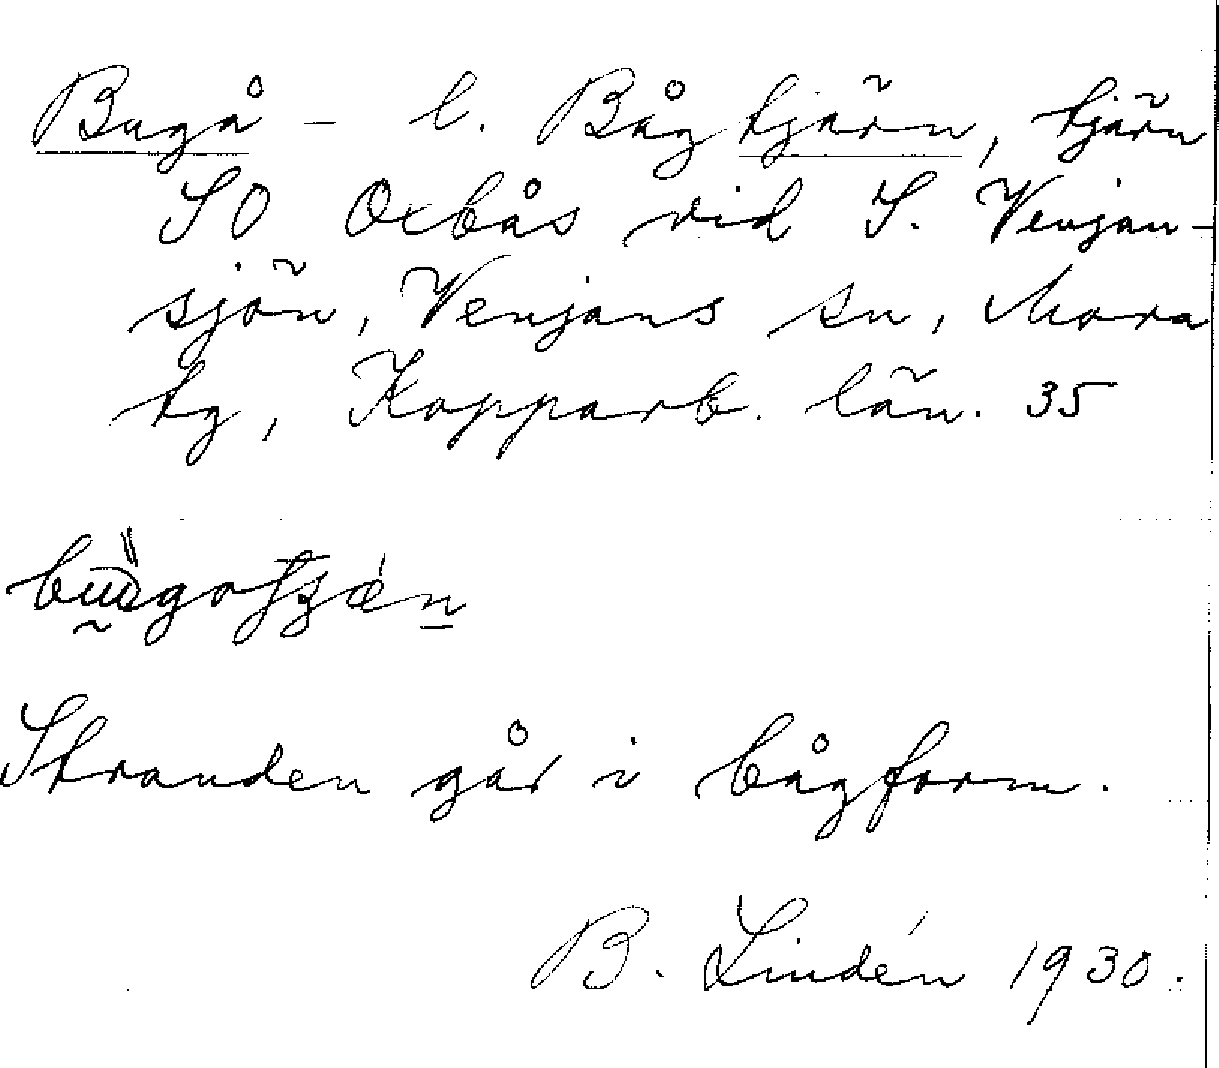 Bugå – l. Bågtjärn, tjärn
SO Oxbås vid S. Venjan-
sjön, Venjans sn, Mora
tg, Kopparb. län. 35
Stranden går i bågform.
B. Lindén 1930.